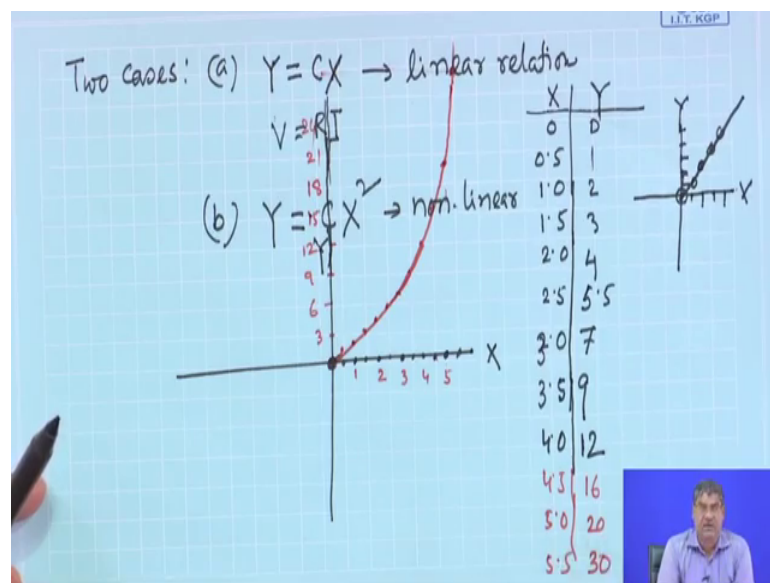 I.I.T. KGP
Two cases: (a) Y = CX → linear relation
V = RI
(b) Y = CX² → non-linear
Y
24
21
18
15
12
9
6
3
1 2 3 4 5 X
X Y
0 0
0.5 1
1.0 2
1.5 3
2.0 4
2.5 5.5
3.0 7
3.5 9
4.0 12
4.5 16
5.0 20
5.5 30
Y
X